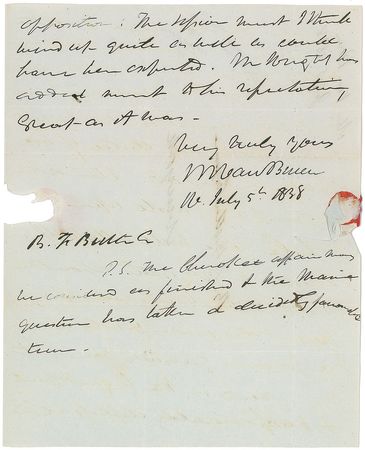 opposition. The session must I think
wind up quite as well as could
have been expected. Mr Wright has
added much to his reputation,
Great as it was -
Very truly yours
M Van Buren
W. July 5th 1838
B. F. Butler
P.S. The Cherokee affair may
be considered as finished & the Maine
question has taken a decidedly favorable
turn -